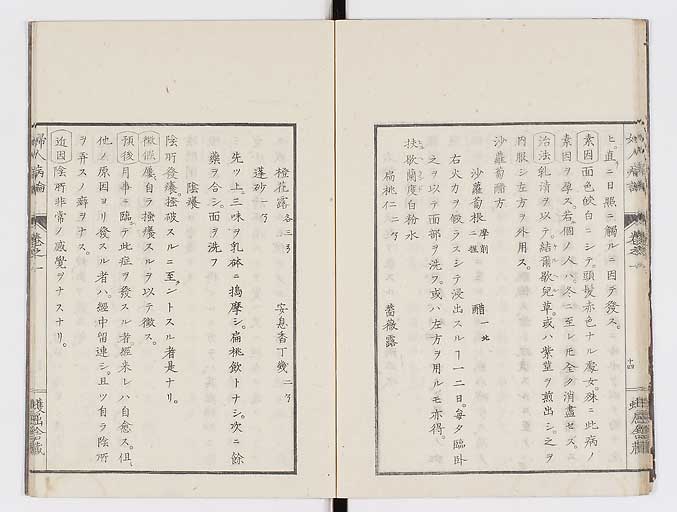 ヒ直ニ日照ニ觸ルニ因テ發ス。
素因 面色皎白ニシテ。頭髮赤色ナル處女。殊ニ此病ノ
素因ヲ享ス。若個ノ人ハ冬ニ至レ𪜈全ク消盡セズ。
治法 乳清ヲ以テ。結爾歇兒草。或ハ紫菫ヲ煎出シ。之ヲ
内服シ左方ヲ外用ス。
沙蘿蔔醋方
沙蘿蔔根 二握 摩剉 醋 一比
右火力ヲ假ラスシテ浸出スルヿ一二日。每夕臨卧
之ヲ以テ面部ヲ洗フ。或ハ左方ヲ用ルモ亦得。
扶歇蘭度白粉水
扁桃仁 二ゟ 薔薇露
橙花露 各三ゟ 安息香丁幾 二ゟ
蓬砂 一ゟ
先ツ上三味ヲ乳鉢ニ搗摩シ。扁桃飲トナシ。次ニ餘
藥ヲ合シ。面ヲ洗フ
陰癢
陰所發癢。搔破スルニ至ントスル者是ナリ。
徵候 屢自ラ搔癢スルヲ以テ徵ス。
預後 月事ニ臨テ此症ヲ發スル者。經來レハ自愈ス。但
他ノ原因ヨリ發スル者ハ。經中留連シ。且ツ自ラ陰所
ヲ弄スノ癖ヲナス。
近因 陰所非常ノ感覺ヲナスナリ。
婦人病論 卷之一